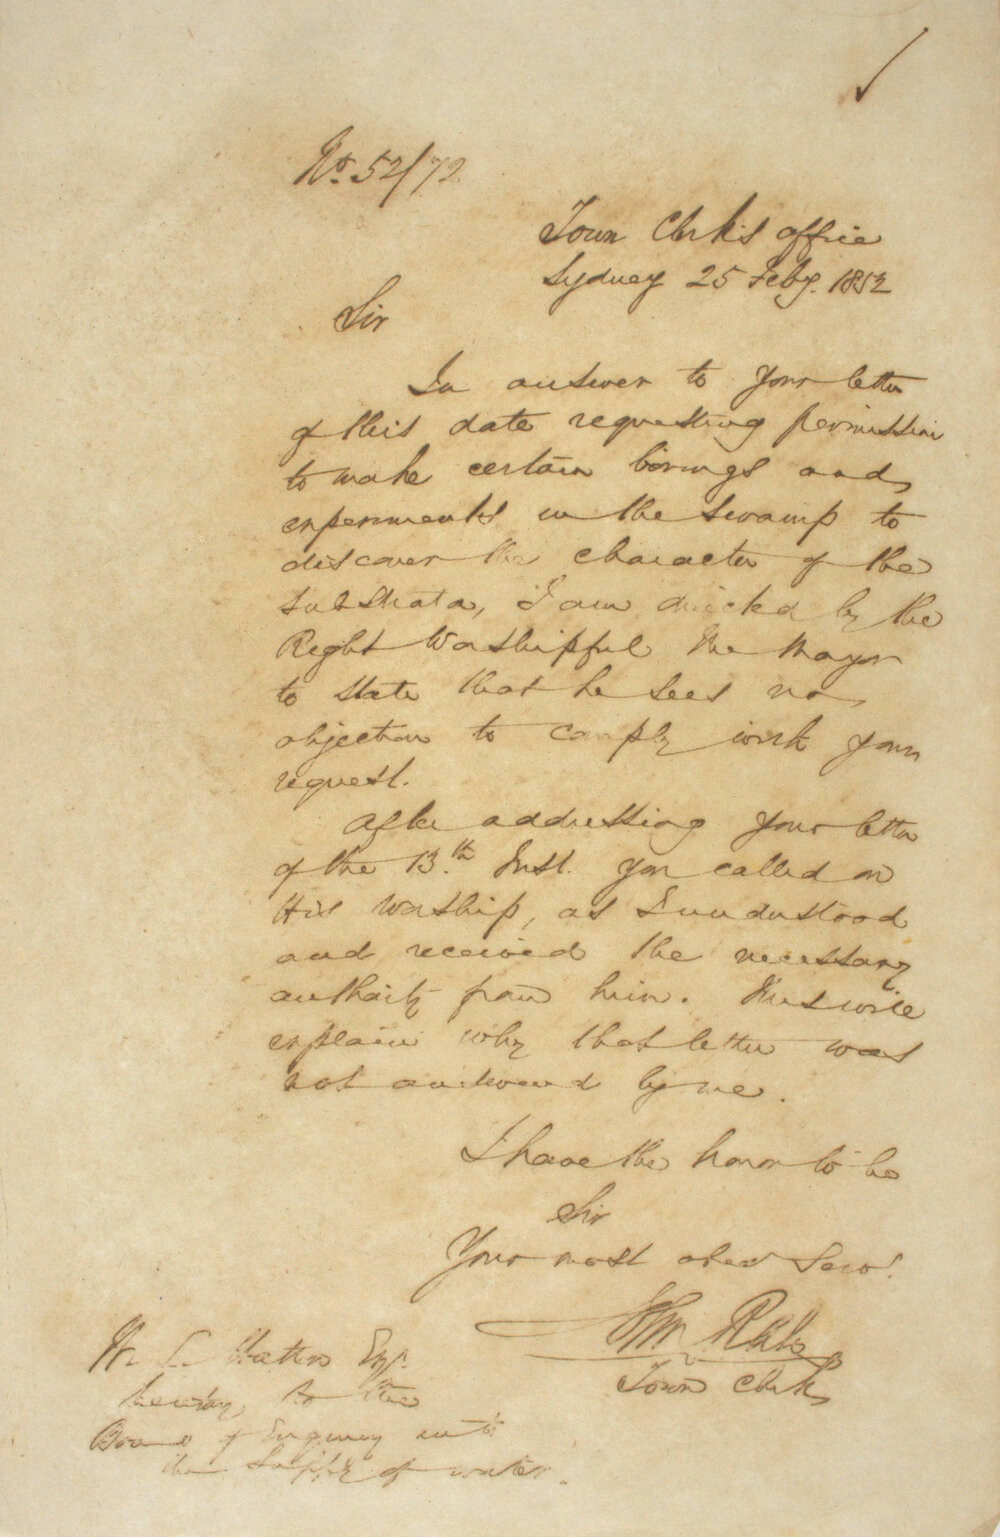 No. 52/72
Town Clerk's Office
Sydney 25 Feby. 1852
Sir
In answer to your letter
of this date requesting permission
to make certain borings and
experiments in the swamp to
discover the character of the
substrata, I am directed by the
Right Worshipful the Mayor
to state that he sees no
objection to comply with your
request.
After addressing your letter
of the 13th Inst. you called on
His Worship, as I understood
and received the necessary
authority from him. This will
explain why that letter was
not answered by me.
I have the honor to be
Sir
Your most obed Servt.
Town Clerk
W. Esqr.
Secretary to the
Board of Enquiry into
the Supply of water.